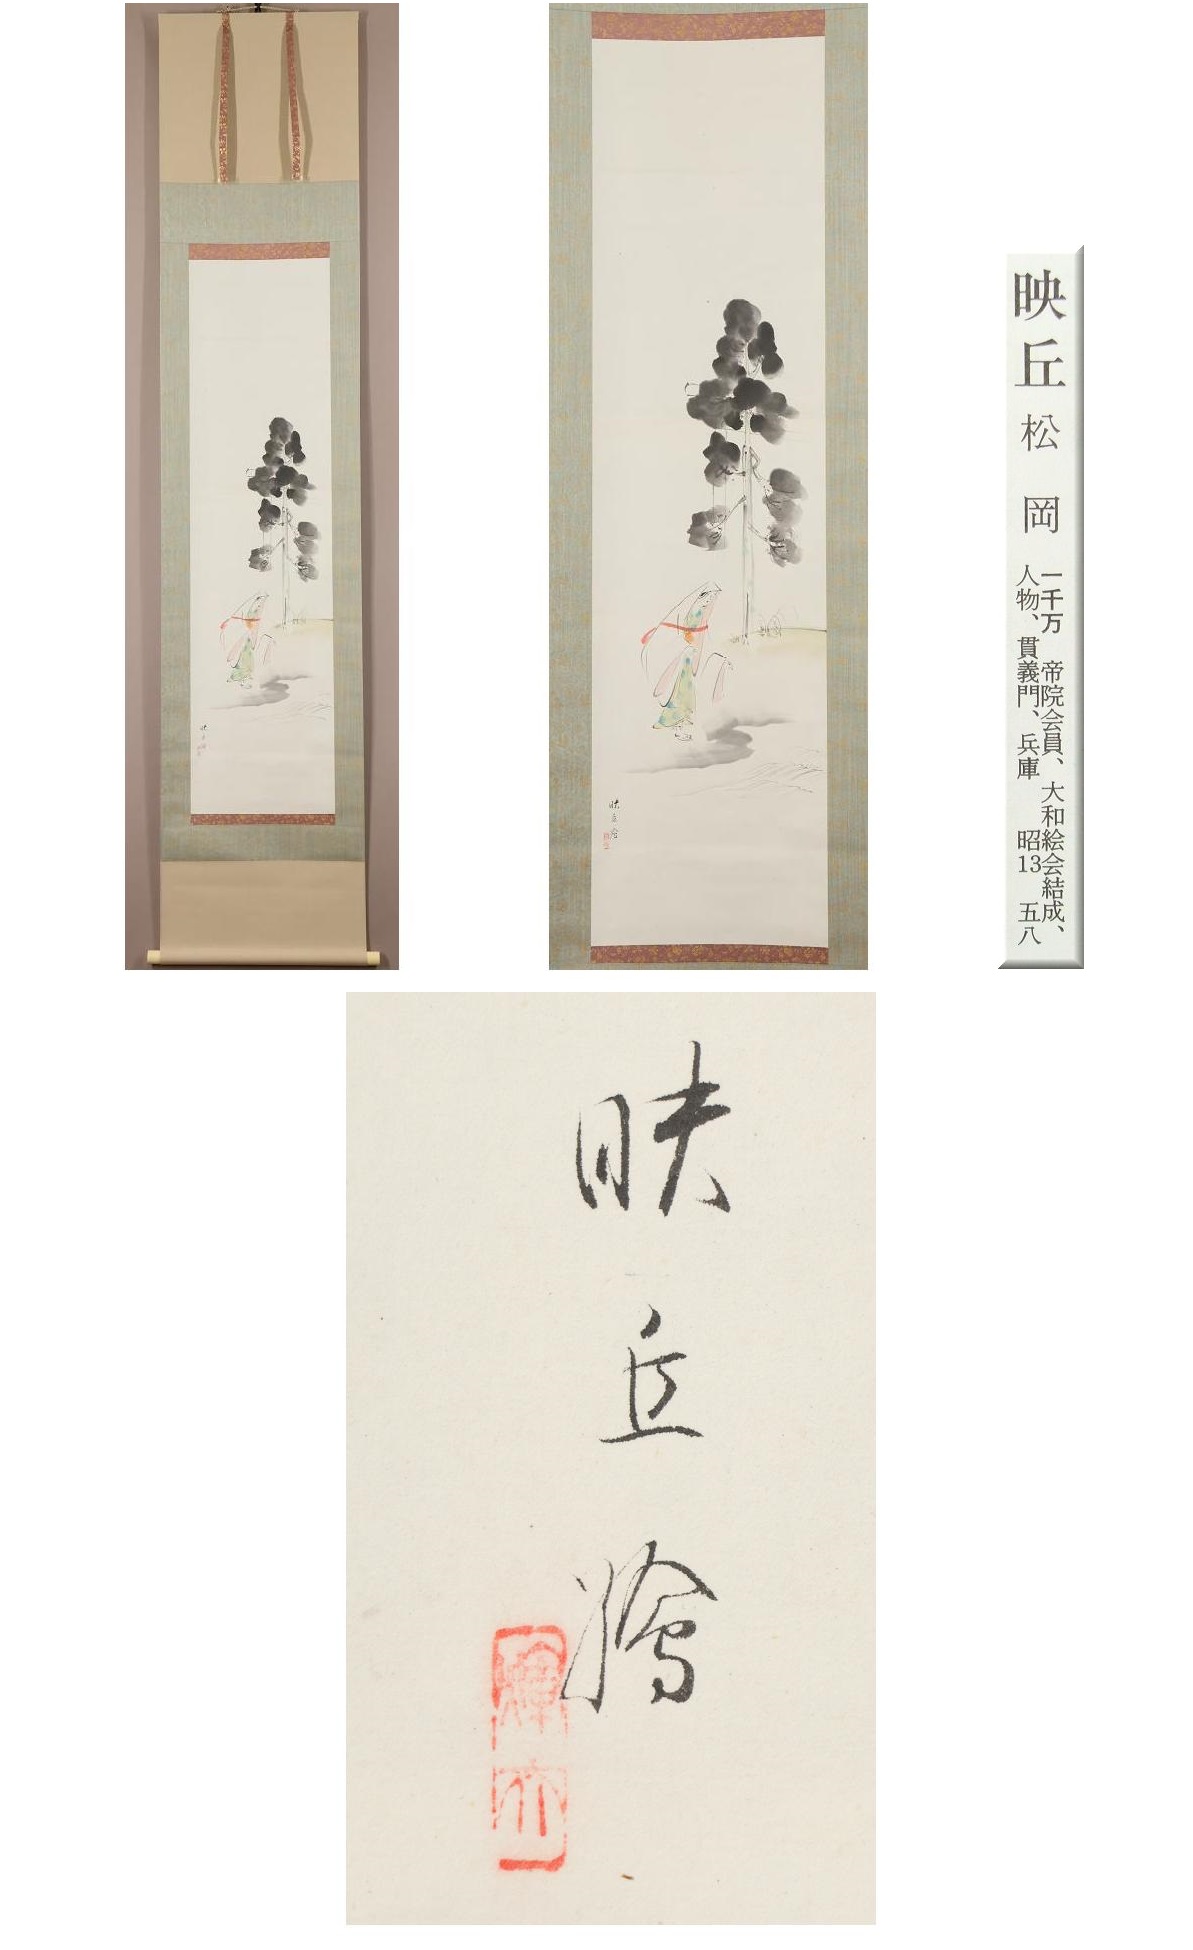 映丘 松岡
一千万 帝院会員、大和絵会結成、
人物、貫義門、兵庫 昭13 五八
映丘
映丘
映丘